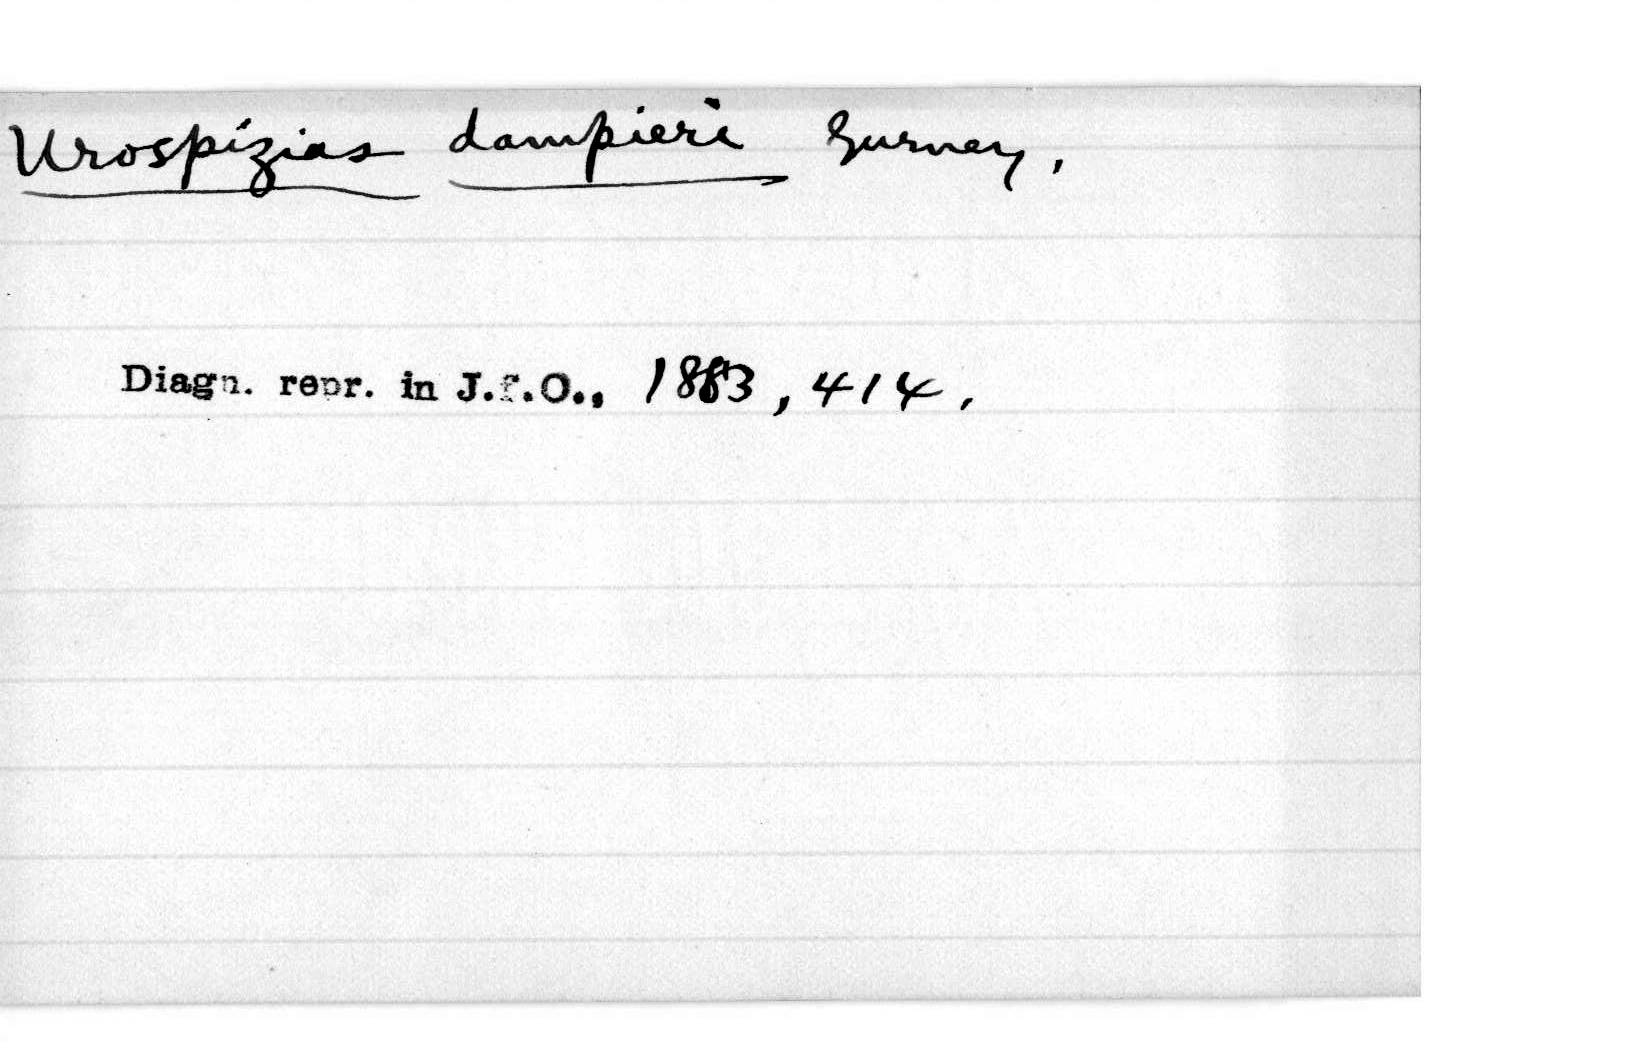 Urospizias dampieri Gurney,
Diagn. repr. in J.f.O., 1883, 414.